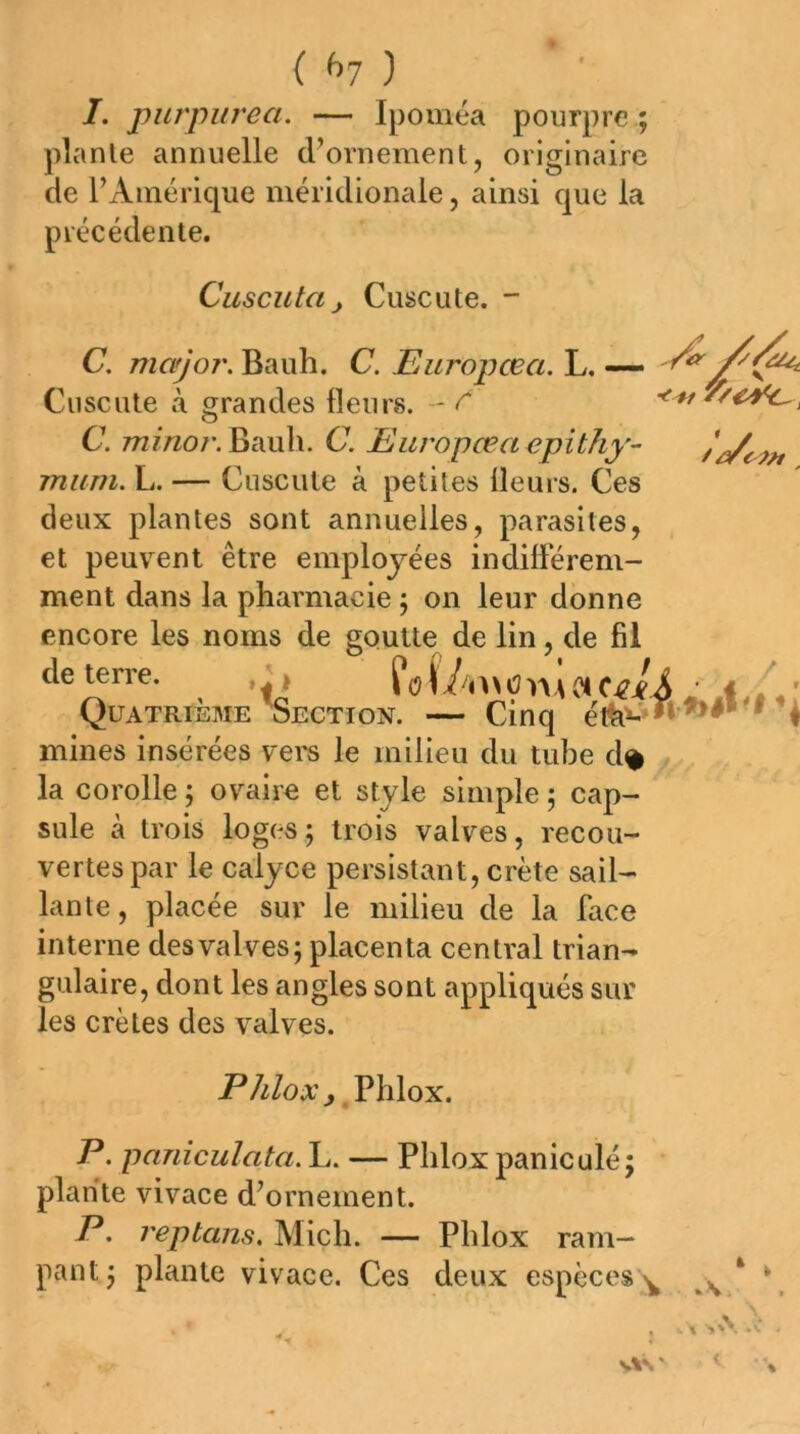 ( 67 )
I. purpurea. — Ipoméa pourpre ;
plante annuelle d’ornement, originaire
de l’Amérique méridionale, ainsi que la
précédente.
Cuscuta, Cuscute. -
C. major. Bauh. C. Europœa. L. —
Cuscute à grandes fleurs. -
C. minor. Bauh. C. Europœa epithy-
mum. L. — Cuscute à petites fleurs. Ces
deux plantes sont annuelles, parasites,
et peuvent être employées indifférem-
ment dans la pharmacie ; on leur donne
encore les noms de goutte de lin, de fil
de terre.
Polémoniacées
Quatrième Section. — Cinq éta-
mines insérées vers le milieu du tube de
la corolle ; ovaire et style simple ; cap-
sule à trois loges ; trois valves, recou-
vertes par le calyce persistant, crète sail-
lante, placée sur le milieu de la face
interne des valves ; placenta central trian-
gulaire, dont les angles sont appliqués sur
les crètes des valves.
Phlox, Phlox.
P. paniculata. L. — Phlox paniculé ;
plante vivace d’ornement.
P. reptans. Mich. — Phlox ram-
pant ; plante vivace. Ces deux espèces